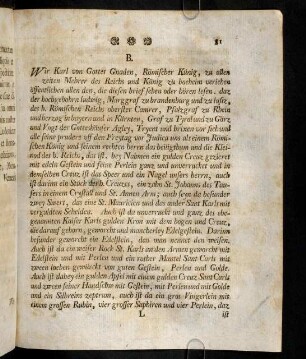 81
B.
Wir Karl von Gottes Gnaden, Römischer König, zu allen
zeiten Mehrer des Reichs und König zu beheim
offentlichen allen den, die disen brief sehen oder hören lesen, daz
der hochgebohrn ludwig, Margraf zu brandenburg und zu lusitz,
des h. Römischen Reichs oberster Camrer, Pfaltzgraf zu Rhein
und herzog in bayeren und in Kärnten, Graf zu Tyrol und zu Görz
und Vogt der Gotteshüser Agley, Trient und brixen vor sich und
alle seine prueder uns den
König und seinem rechten herren das heiligthum und die Klei-
nod des h. Reichs, die ist, bey Namen ein gulden Creuz gezieret
mit edeln Gestein und seine Perlein ganz und unverrucket und in
demselben Creuz ist das Speer und ein Nagel unsers herrn, auch
ist darinn ein Stuck des h. Creuzes, ein zahn St. Johanns des Tau-
fers in einem Crystall und St. Annen Arm; auch seyn da besunder
zwey Swert, das eine St. Mauricien und das ander Sant Karls mit
vergulten Scheiden. Auch ist da unverruckt und ganz des ob-
genannten Kaiser Karls gulden Kron mit dem bogen und Creuz,
die darauf gehorn, geworcht und mancherley Edelgestein. Darinn
besunder geworcht ein Edelstein, den man nennet den weisen.
Auch ist da ein weißer Rock St. Karls an den Armen geworcht mit
Edelstein und mit Perlen und ein rother Mantel Sant Carls mit
zween lieben geworcht von guten Gestein, Perlen und Golde.
Auch ist dabey ein gulden Apfel mit einem gulden Creuz Sant Carls
und zween seiner Handschu mit Gestein, mit Perlen und mit Golde
und ein Silbreins zeptrum, auch ist da ein gros Vingerlein mit
einem grossen Rubin, vier grosser Saphiren und vier Perlein, daz
L ist